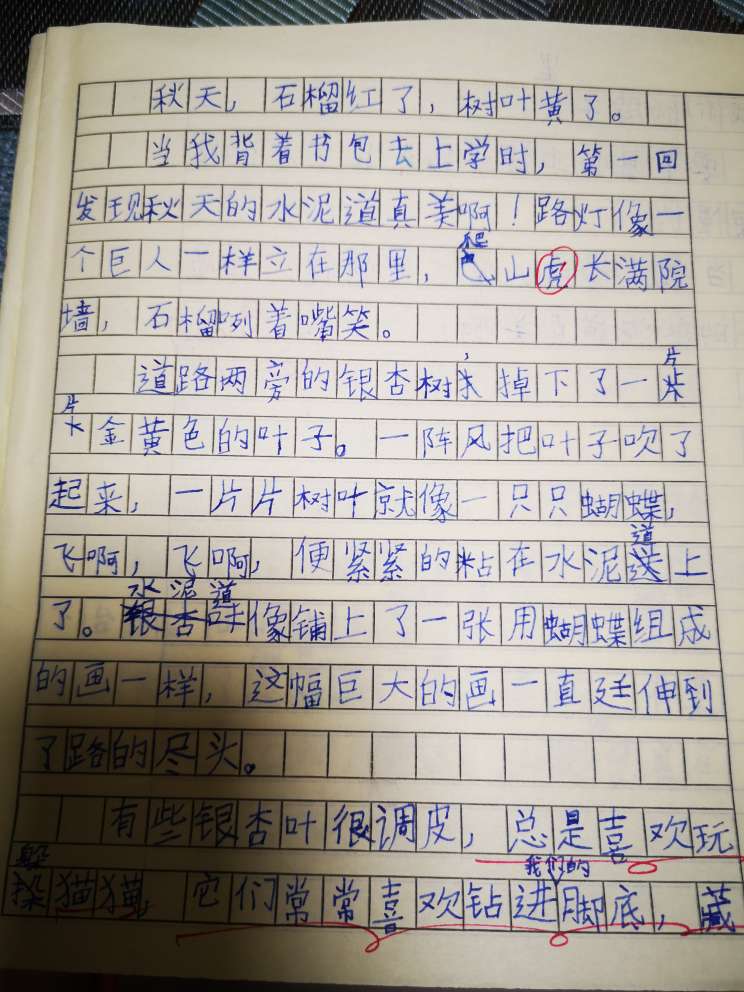 秋天，石榴红了，树叶黄了。
当我背着书包去上学时，第一回
发现秋天的水泥道真美啊！路灯像一
个巨人一样立在那里，爬山虎长满院
墙，石榴咧着嘴笑。
道路两旁的银杏树掉下了一片
片金黄色的叶子。一阵风把叶子吹了
起来，一片片树叶就像一只只蝴蝶，
飞啊，飞啊，便紧紧的粘在水泥道上
了。水泥道像铺上了一张用蝴蝶组成
的画一样，这幅巨大的画一直延伸到
了路的尽头。
有些银杏叶很调皮，总是喜欢玩
躲猫猫，它们常常喜欢钻进我们的脚底，藏